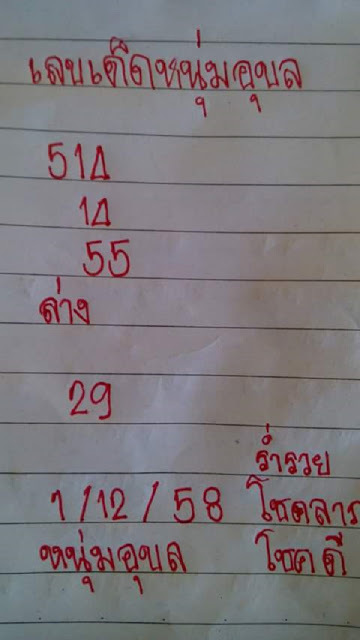 เลขเด็ดหนุ่มอุบล
514
14
55
ล่าง
29
ร่ำรวย
1/12/58 โชคลาภ
หนุ่มอุบล โชคดี